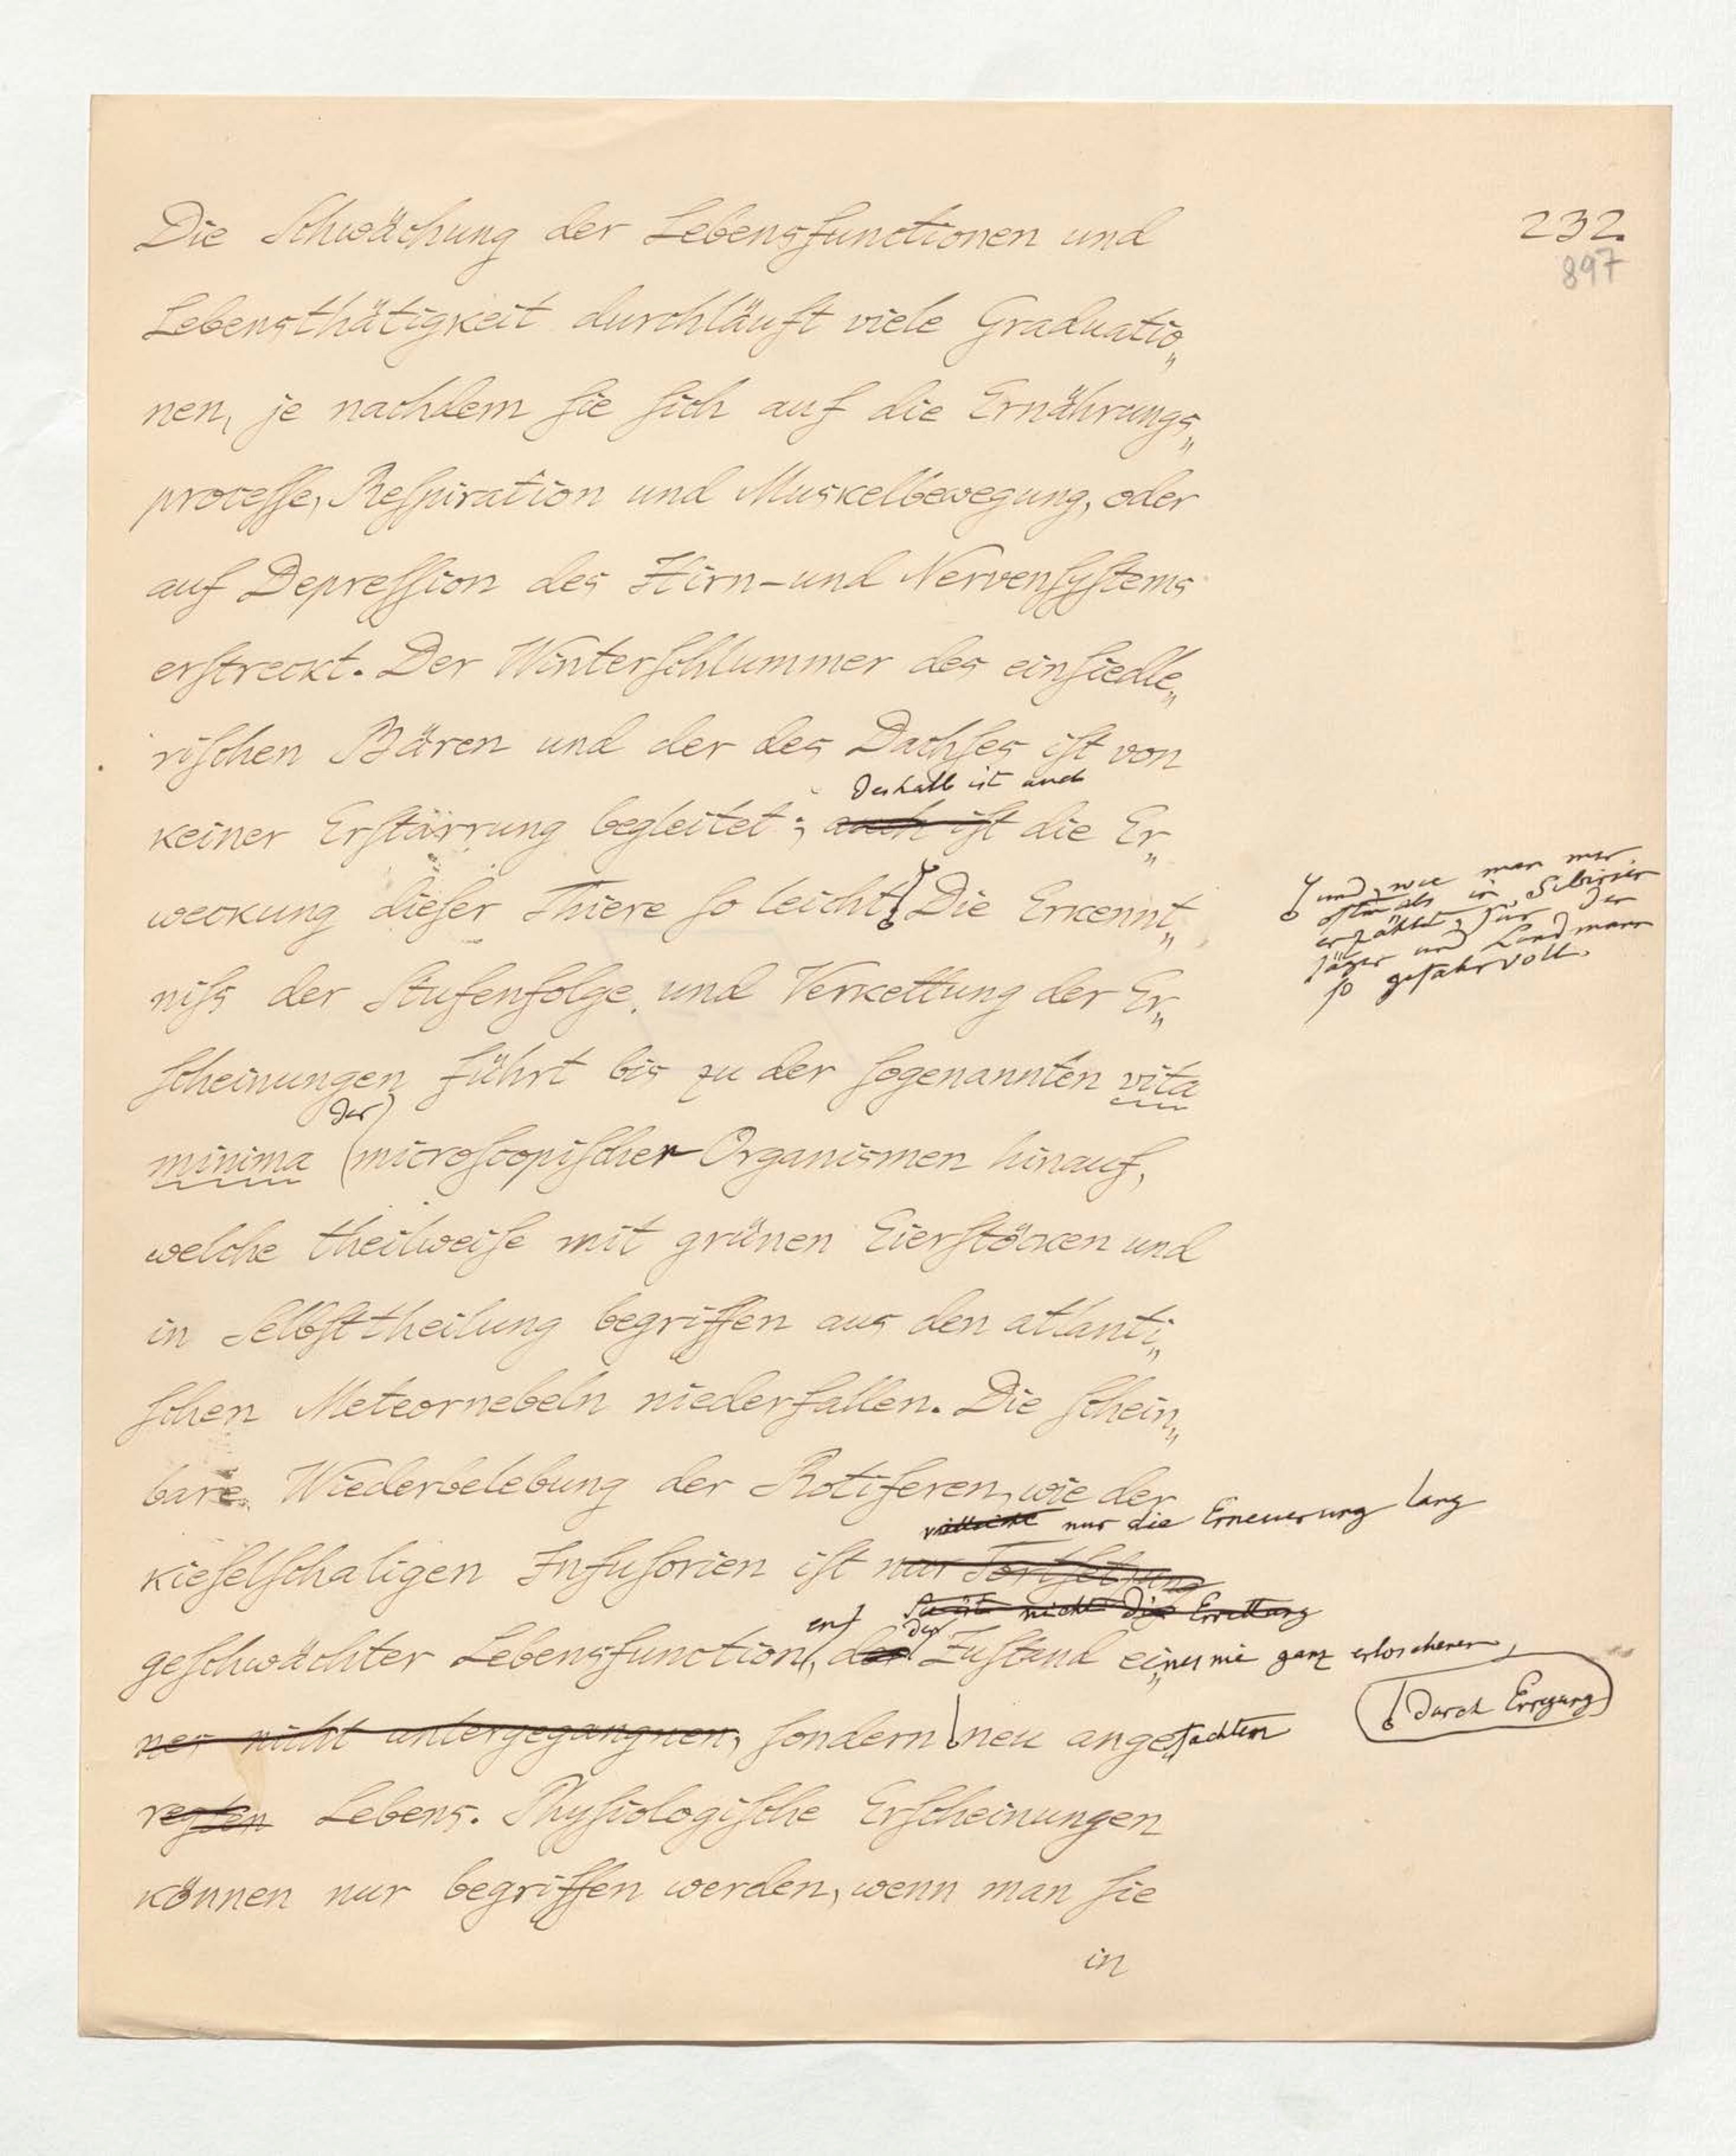 232.
897
Die Schwächung der Lebensfunctionen und
Lebensthätigkeit durchläuft viele Graduatio„
nen, je nachdem sie sich auf die Ernährungs„
processe, Respiration und Muskelbewegung, oder
auf Depression des Hirn-und Nervensystems
erstreckt. Der Winterschlummer des einsiedle„
rischen Bären und der des Dachses ist von
deshalb ist auch
keiner Erstarrung begleitet; auch ist die Er„
weckung dieser Thiere so leicht! Die Erkennt„
und, wie man mir
oftmals in Sibirien
erzählte, für den
Jäger und Landmann
so gefahrvoll.
niss der Stufenfolge und Verkettung der Er„
scheinungen führt bis zu der sogenannten vita
der
minima microscopischer Organismen hinauf,
welche theilweise mit grünen Eierstöcken und
in Selbsttheilung begriffen aus den atlanti„
schen Meteornebeln niederfallen. Die schein„
bare Wiederbelebung der Rotiferen, wie der
vielleicht nur die Erneuerung lang
kieselschaligen Infusorien ist nur Fortsetzung
nicht die
en den
geschwächter Lebensfunction, der Zustand eines nie ganz erloschenen,
durch Erregung
ner nicht untergegangnen, sondern neu angefachten
regten Lebens. Physiologische Erscheinungen
können nur begriffen werden, wenn man sie
in